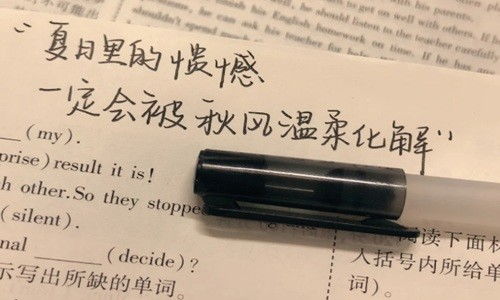 with his parents.
to get on well with others. If h
he should listen to the teacher carefully
his English homework on time. If he
"夏日里的愦憾
一定会被秋风温柔化解"
(my).
prise) result it is!
h other. So they stoppe
(silent).
nal ______ (decide)?
示写出所缺的单词。
阅读下面材
入括号内所给单
词)。